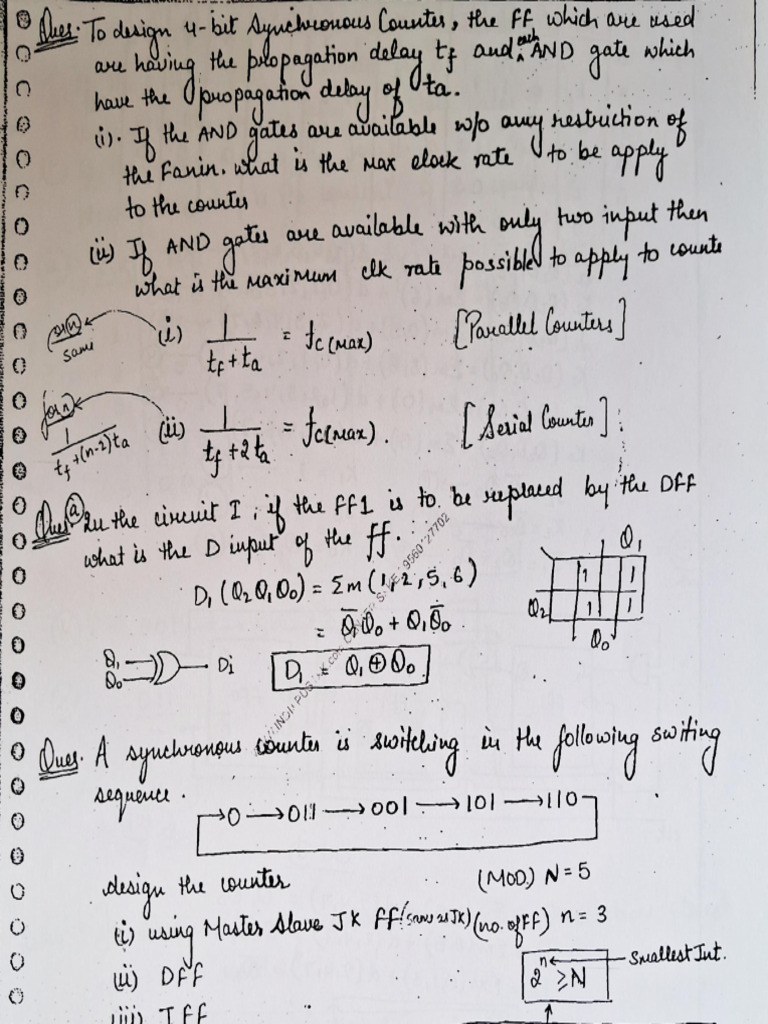 Ques. To design 4-bit Synchronous Counter, the FF which are used
are having the propagation delay tf and each AND gate which
have the propagation delay of ta.
(i). If the AND gates are available w/o any restriction of
the Fanin. what is the Max clock rate to be apply
to the counter
(ii) If AND gates are available with only two input then
what is the Maximum clk rate possible to apply to counte
same (i) 1/(tf + ta) = fc(Max) [Parallel Counters]
for(n) 1/(tf + (n-2)ta) (ii) 1/(tf + 2ta) = fc(Max). [Serial Counter]
Ques (a) In the circuit I, if the FF1 is to be replaced by the DFF
what is the D input of the ff.
D1 (Q2Q1Q0) = Σm (1, 2, 5, 6)
= Q̄1Q0 + Q1Q̄0
Q1
1 1
Q2 1 1
Q0
Q1
Q0 Di D1 = Q1 ⊕ Q0
Ques. A synchronous counter is switching in the following switing
sequence.
0 → 011 → 001 → 101 → 110
design the counter (MOD) N = 5
(i) using Master Slave JK FF (same as JK) (no. of FF) n = 3
2^n ≥ N Smallest Int.
(ii) DFF
(iii) TFF